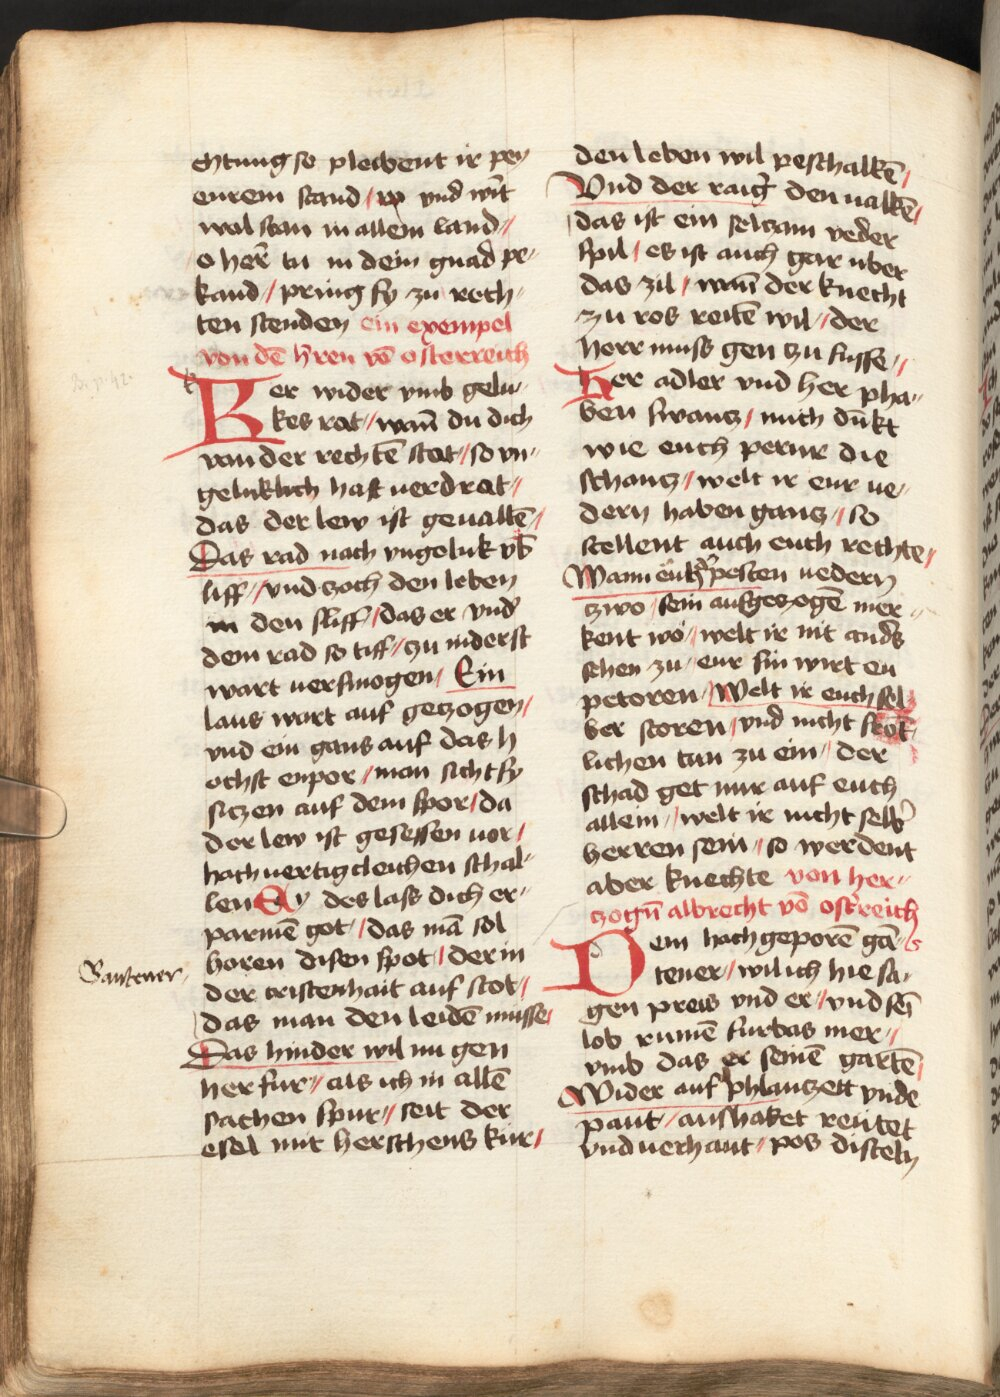 chtung so pleibent ir pey
eurem stand / vnd wirt
wol stan in allem land //
o herr tu in dein gnad pe-
kand / pring sy zu rech-
ten stenden ein exempel
von dē h̄ren vō osterreich
Ker wider vmb gelu-
kes rat // wañ du dich
von der rechtē stat / so vn-
geluklich hast uerdrat //
das der lew ist geuallē /
Das rad nach vngeluk vb̄
liff // vnd zoch den leben
in den sliff / das er vnd
dem rad so tiff // zu niderst
wart uersmogen / Ein
laus wart auf getzogen /
vnd ein gans auf das h
ochst enpor / man sicht sy
sitzen auf dem spor / da
der lew ist gesessen uor /
hachuertigcleichen schal-
len Ey des lass dich er-
parmē got / das mā sol
horen disen spot / der in
der cristenhait auf stot /
das man den leidē musse
Das hinder wil nu gen
her fur // als ich in allē
sachen spur // seit der
esel mit herschens kur /
Gartener
den leben wil peschalkē /
Vnd der raig̃ den ualkē /
das ist ein seltzam veder
spil / es ist auch gar uber
das zil / wañ der knecht
zu ros reitē wil / der
herr muss gen zu fusse //
Her adler vnd her pha-
ben swantz / mich dūkt
wie euch perur die
schantz / welt ir eur ue-
dern haben gantz / so
stellent auch euch rechte /
Wann pesten uedern
tzwo sein aufgezogē mer-
kent wo / welt ir nit anders
sehen zu / eur sin wirt en
petoren / Welt ir euch sel
ber storen / vnd nicht
lichen tun zu ein / der
schad get nur auf euch
allein / welt ir nicht selb̄
herren sein // so werdent
aber knechte von her-
tzogñ albrecht vō ost̄reich
Dem hachgeporē gar-
tener / wil ich hie sa-
gen preis vnd er / vnd sein
lob rumē furbas mer //
vmb das er seinē gartē
Wider auf phlantzett vnde
paut / aushaket reutet
vnd uerhaut / pos disteln